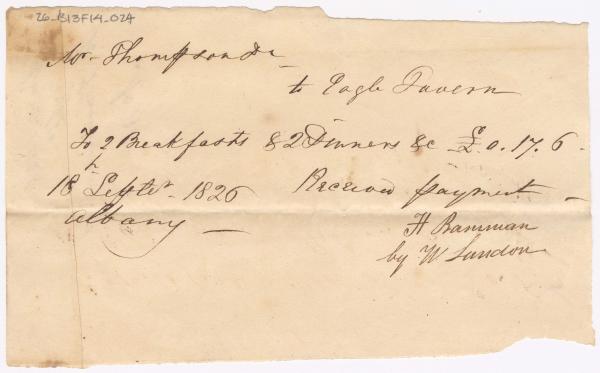 26_B13F14_024
Mr Thompson Dr
to Eagle Tavern
To 2 Breakfasts & 2 Dinners &c £0.17.6
18th Septer 1826 Received payment
Albany
H Bamman
by W Landon